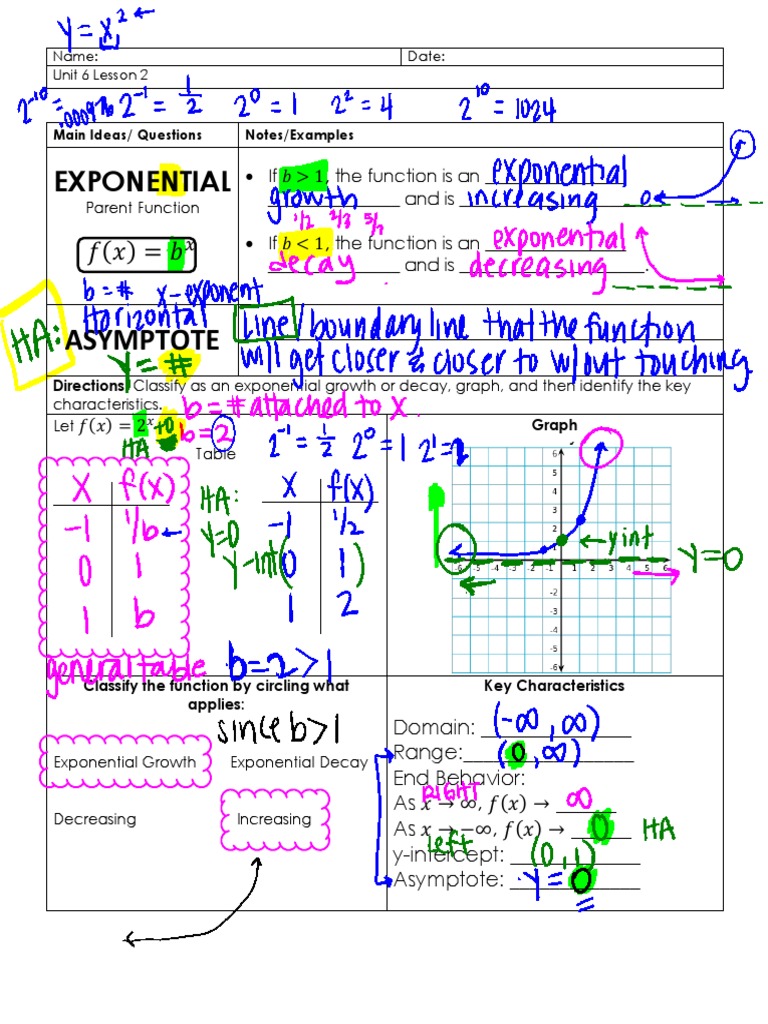 y = x² ←
Name: Date:
Unit 6 Lesson 2
2⁻¹⁰ = .000976 2⁻¹ = 1/2 2⁰ = 1 2² = 4 2¹⁰ = 1024
Main Ideas/ Questions Notes/Examples
EXPONENTIAL
Parent Function
f(x) = bˣ
b = # x - exponent
• If b > 1, the function is an exponential
growth and is increasing 0
1/2 2/3
• If b < 1, the function is an exponential
decay and is decreasing.
HA: Horizontal
ASYMPTOTE
y = #
Line / boundary line that the function
will get closer & closer to w/out touching.
Directions: Classify as an exponential growth or decay, graph, and then identify the key
characteristics. b = # attached to x.
Let f(x) = 2ˣ +0 b = 2
HA
Table
2⁻¹ = 1/2 2⁰ = 1 2¹ = 2
x f(x)
-1 1/b ←
0 1
1 b
general table
HA:
y = 0
x f(x)
-1 1/2
y-int (0 1)
1 2
b = 2 > 1
Graph
6
5
4
3
2
1
-6 -5 -4 -3 -2 -1 1 2 3 4 5 6
-2
-3
-4
-5
-6
← y int
y = 0
Classify the function by circling what
applies:
since b > 1
Exponential Growth Exponential Decay
Decreasing Increasing
Key Characteristics
Domain: (-∞, ∞)
Range: (0, ∞)
End Behavior:
RIGHT
As x → ∞, f(x) → ∞
As x → -∞, f(x) → 0 HA
left
y-intercept: (0, 1)
Asymptote: y = 0